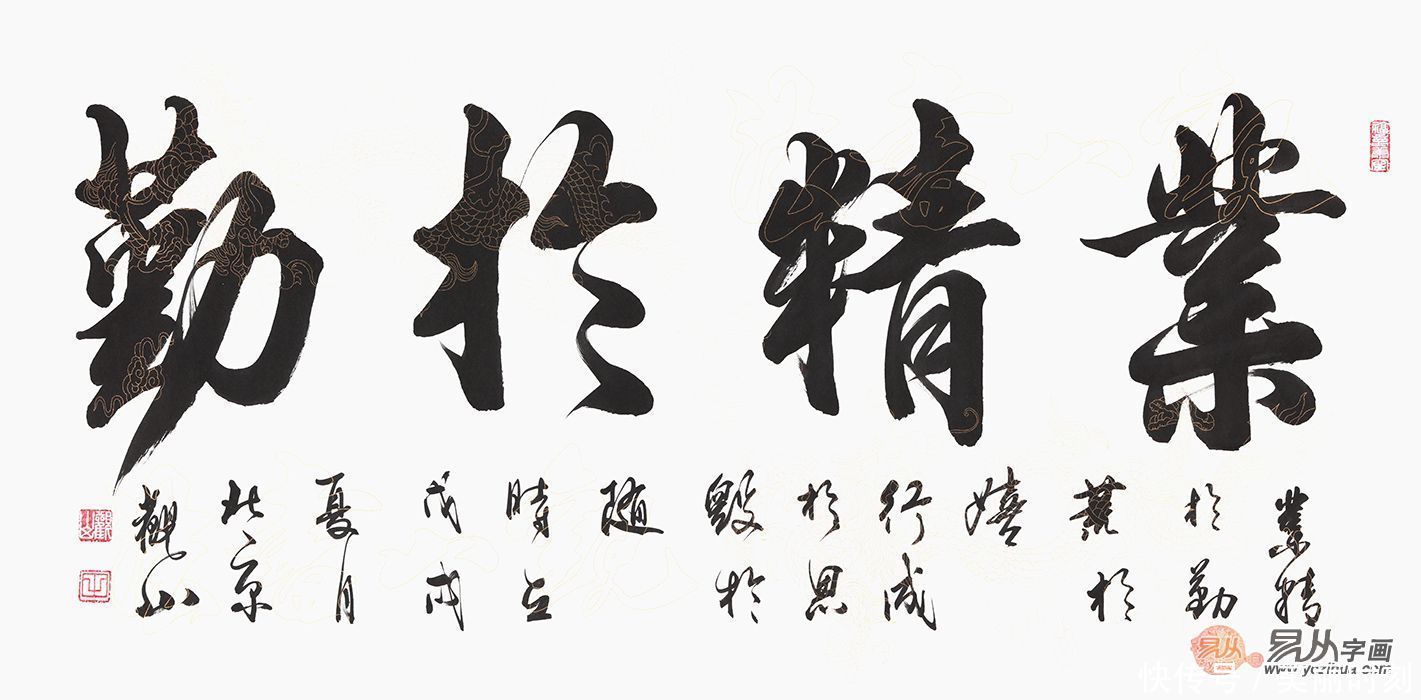 業精於勤
業精
於勤
荒於
嬉
行成
於思
毀於
随
時在
戊戌
夏月
北京
觀山
易从字画
www.yczihua.com
快传号 / 美丽时刻